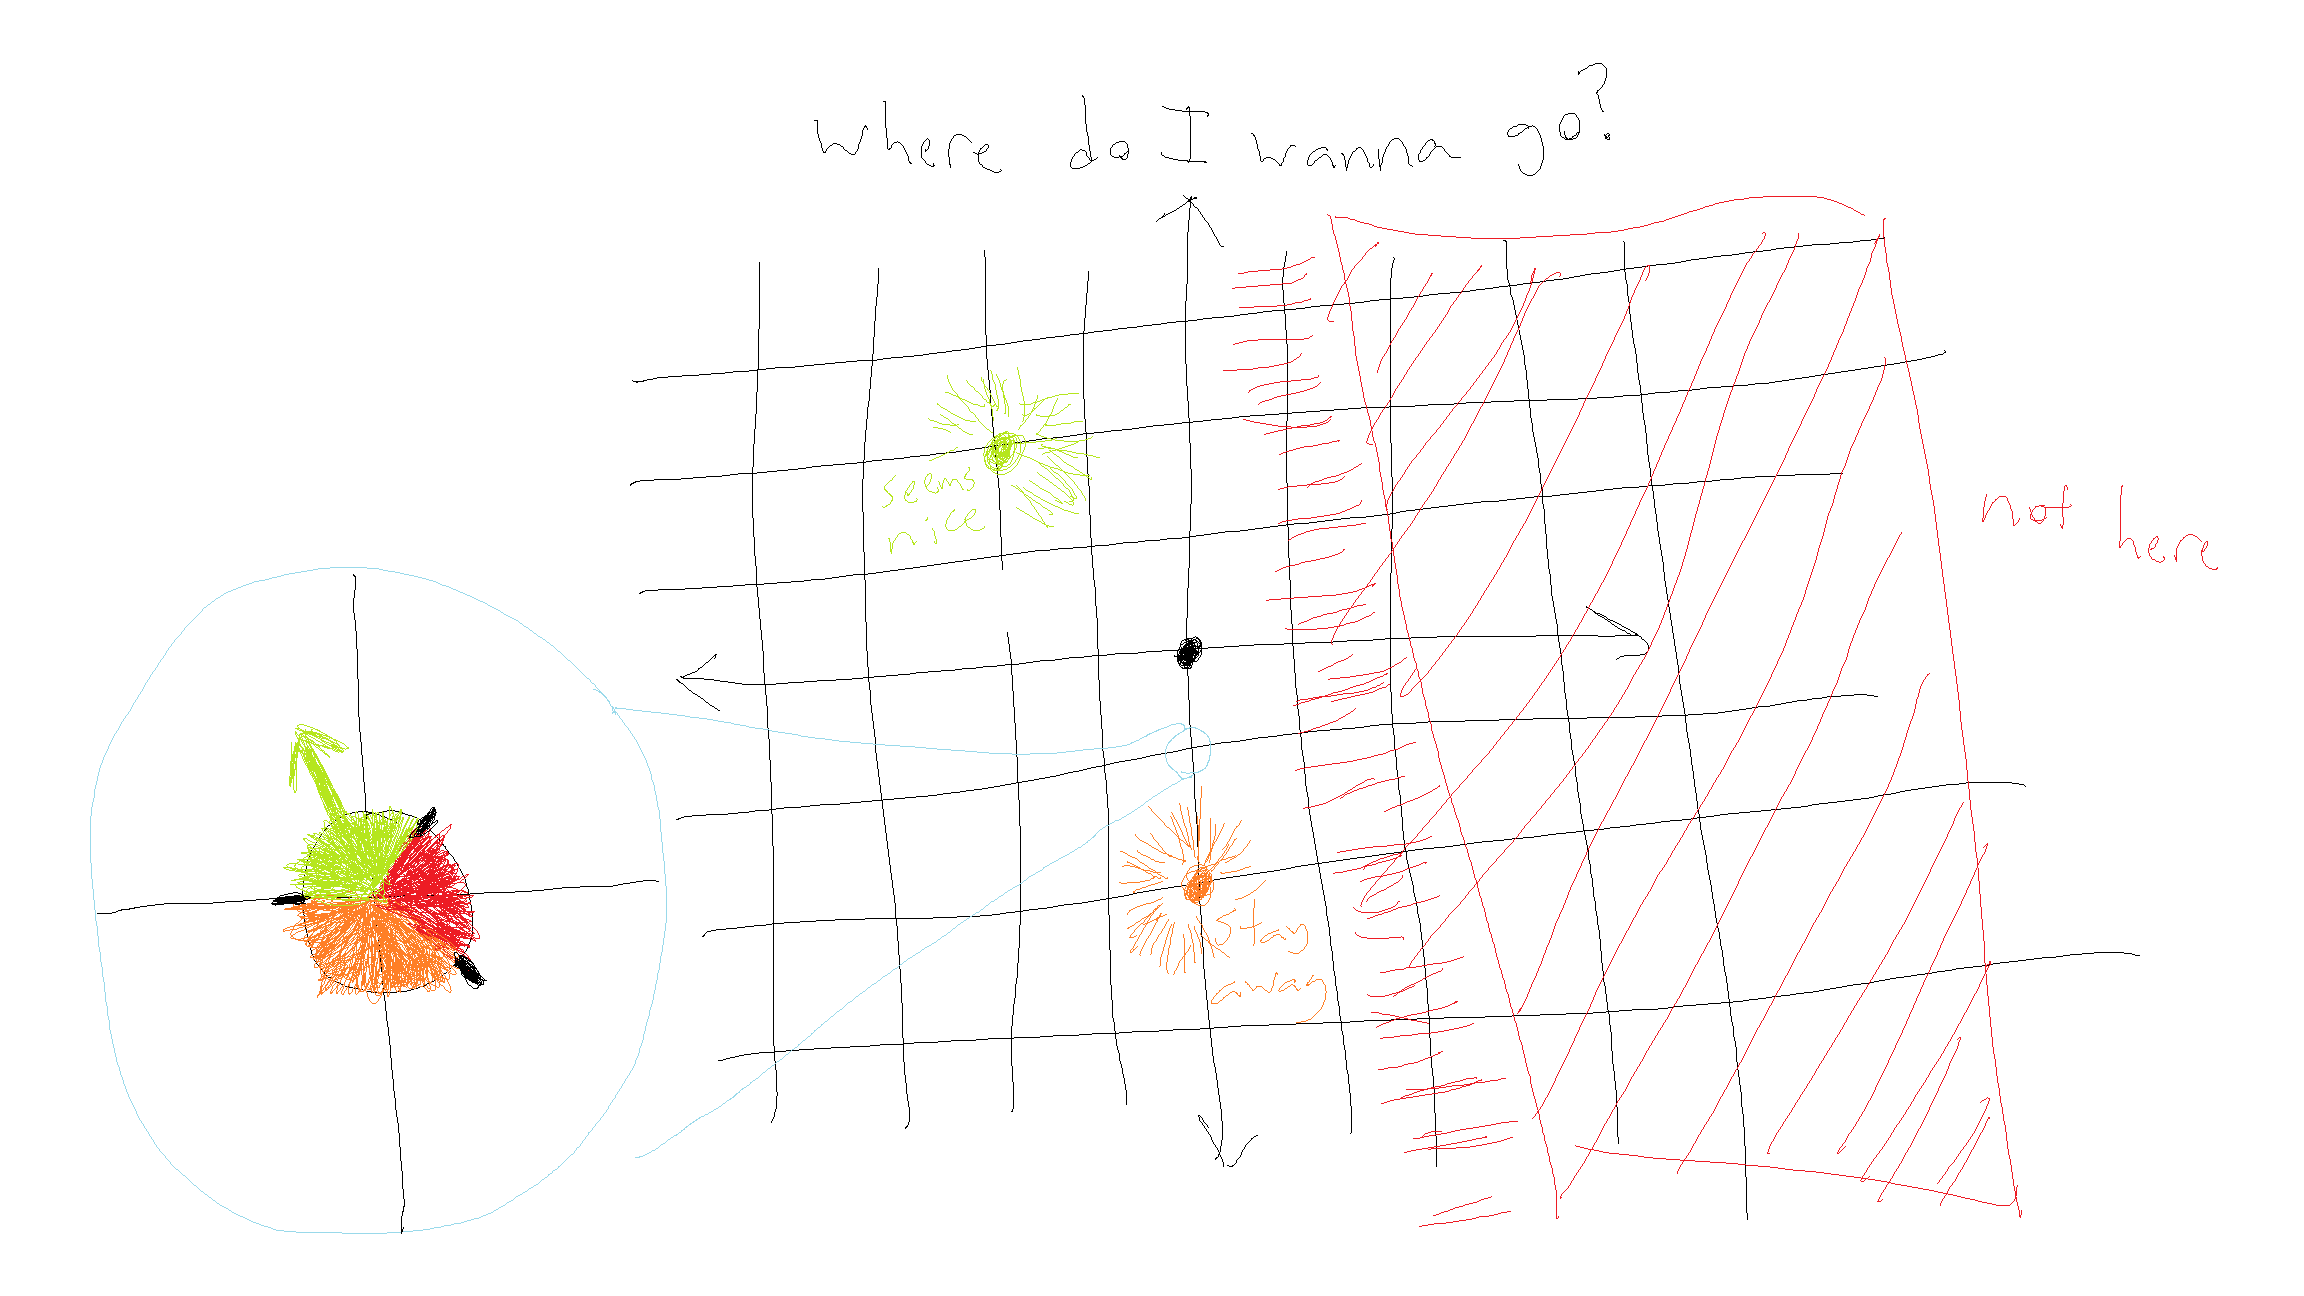 where do I wanna go?
seems
nice
not here
stay
away